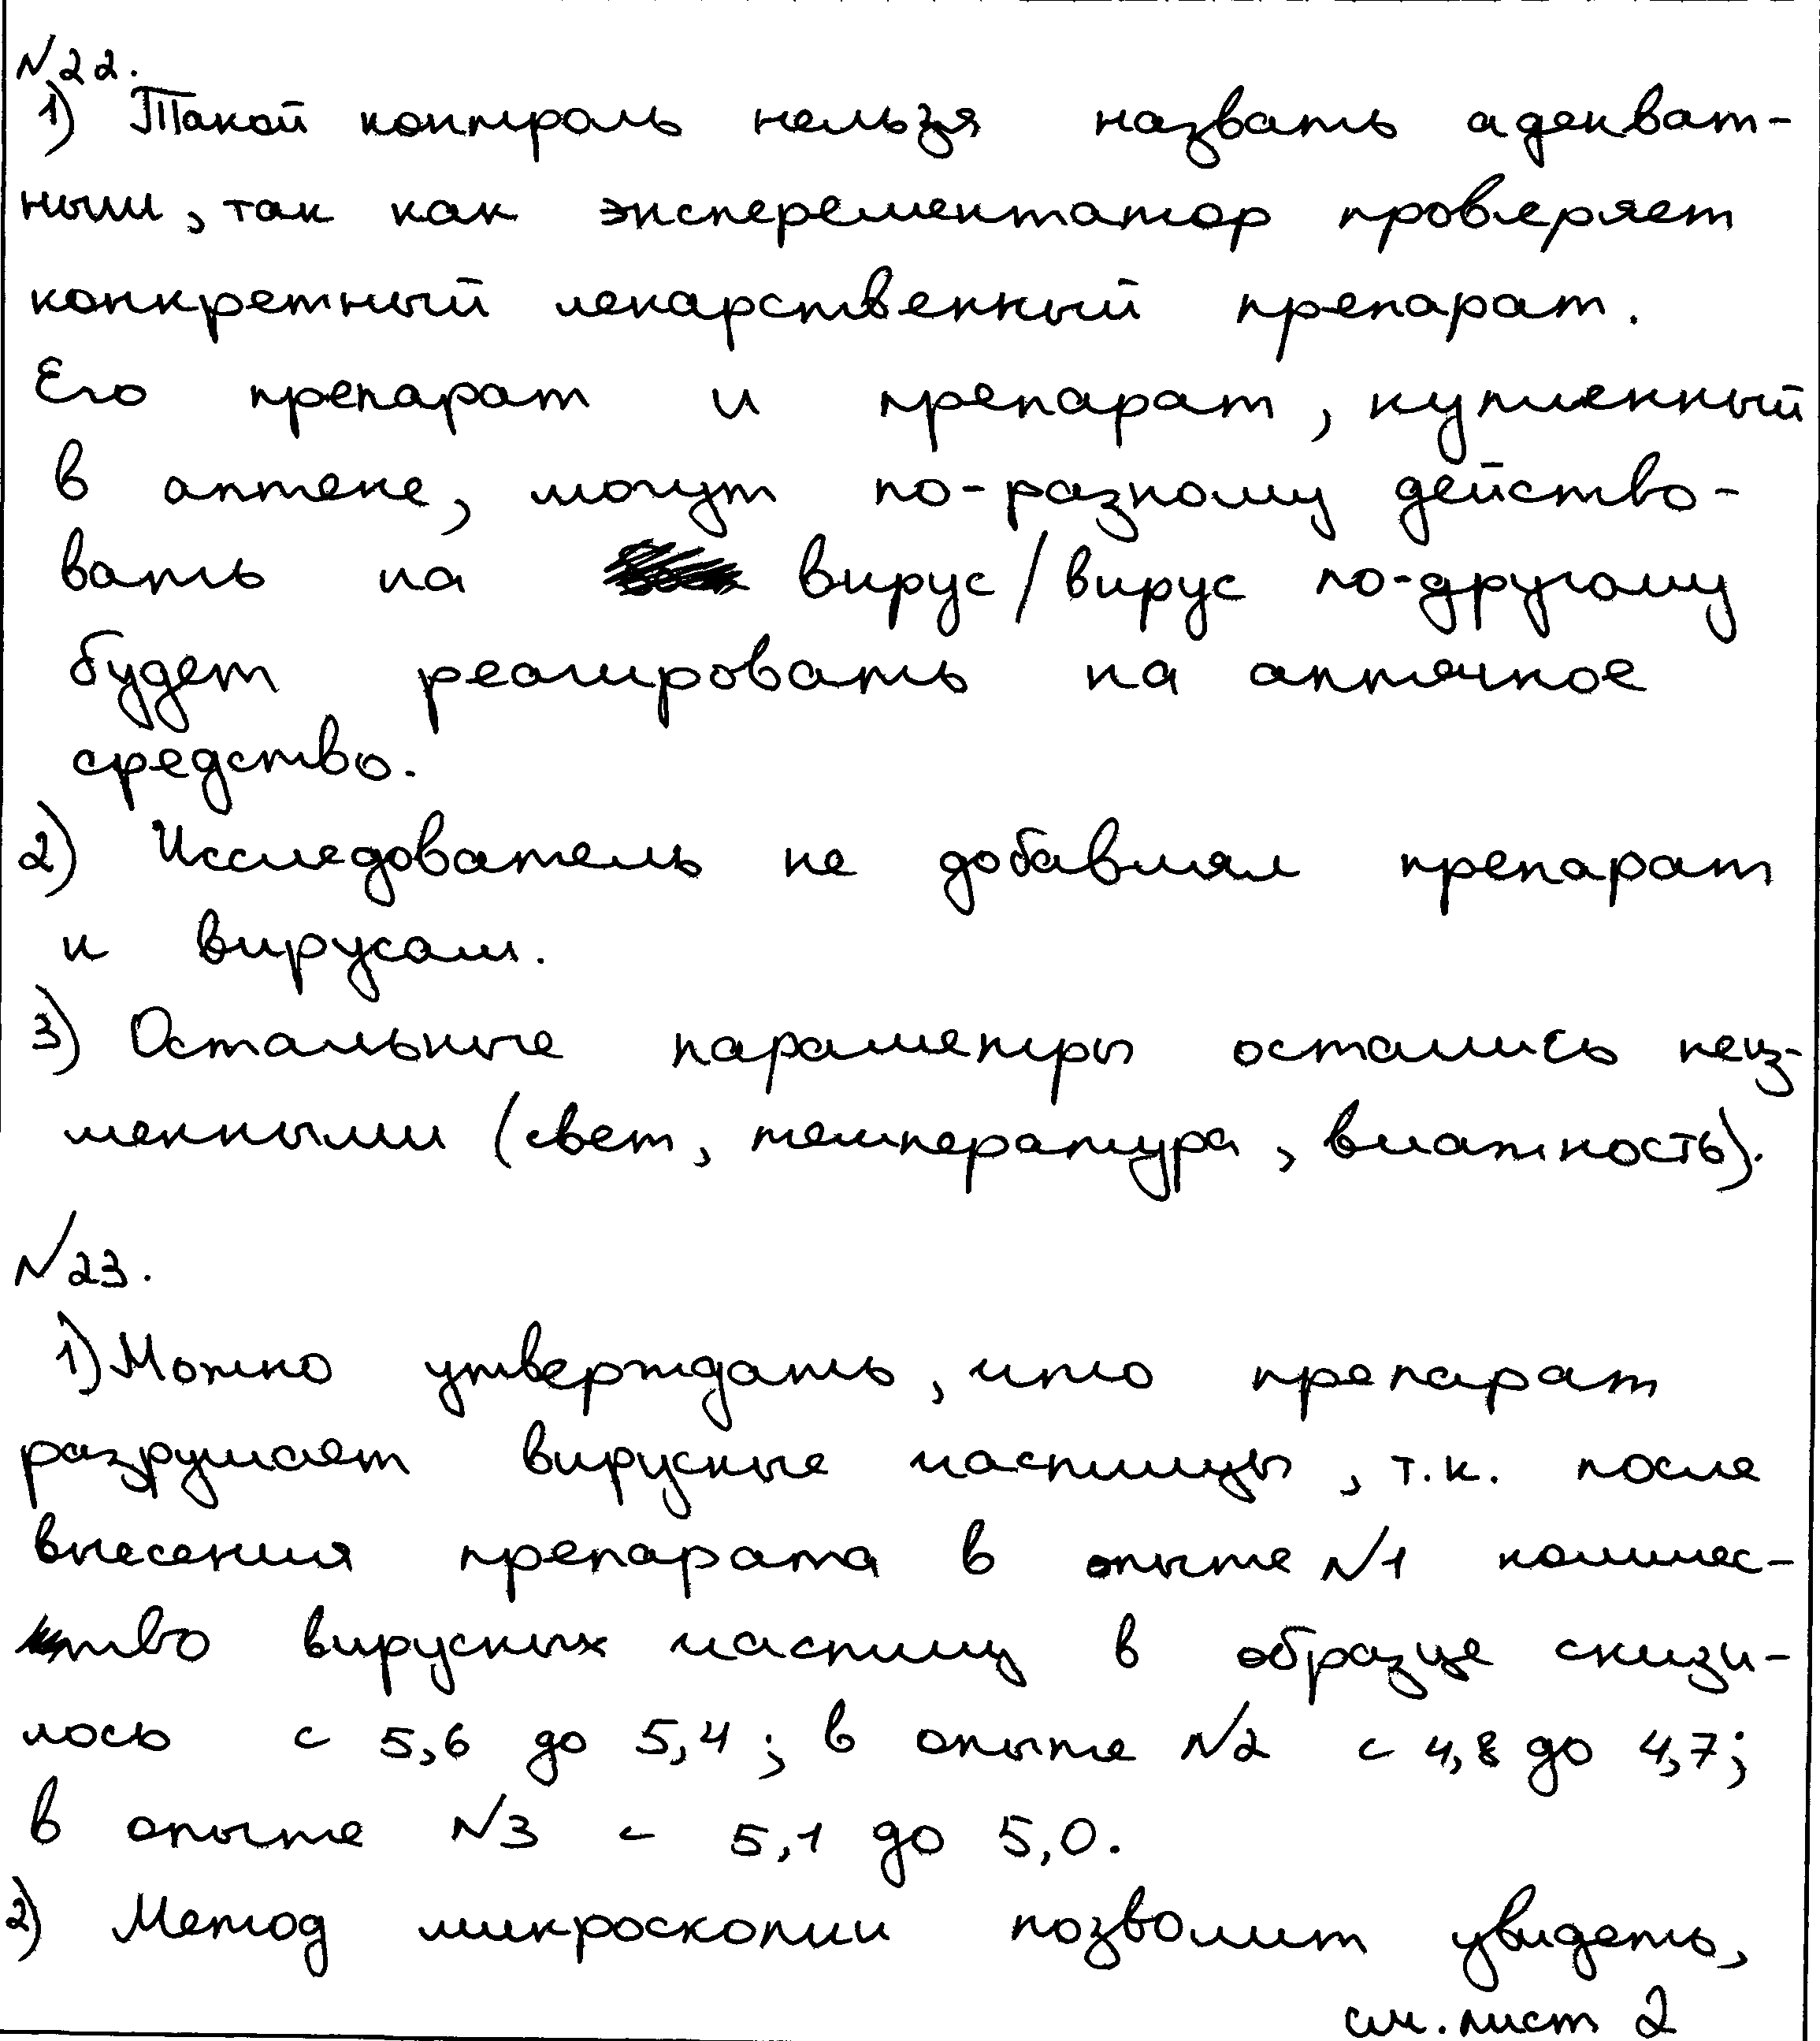 №22.
1) Такой контроль нельзя назвать адекват-
ным, так как эксперементатор проверяет
конкретный лекарственный препарат.
Его препарат и препарат, купленный
в аптеке, могут по-разному действо-
вать на вирус/вирус по-другому
будет реагировать на аптечное
средство.
2) Исследователь не добавлял препарат
к вирусам.
3) Остальные параметры остались неиз-
менными (свет, температура, влажность).
№23.
1) Можно утверждать, что препарат
разрушает вирусные частицы, т.к. после
внесения препарата в опыте №1 количес-
тво вирусных частиц в образце снизи-
лось с 5,6 до 5,4; в опыте №2 с 4,8 до 4,7;
в опыте №3 с 5,1 до 5,0.
2) Метод микроскопии позволит увидеть,
см. лист 2